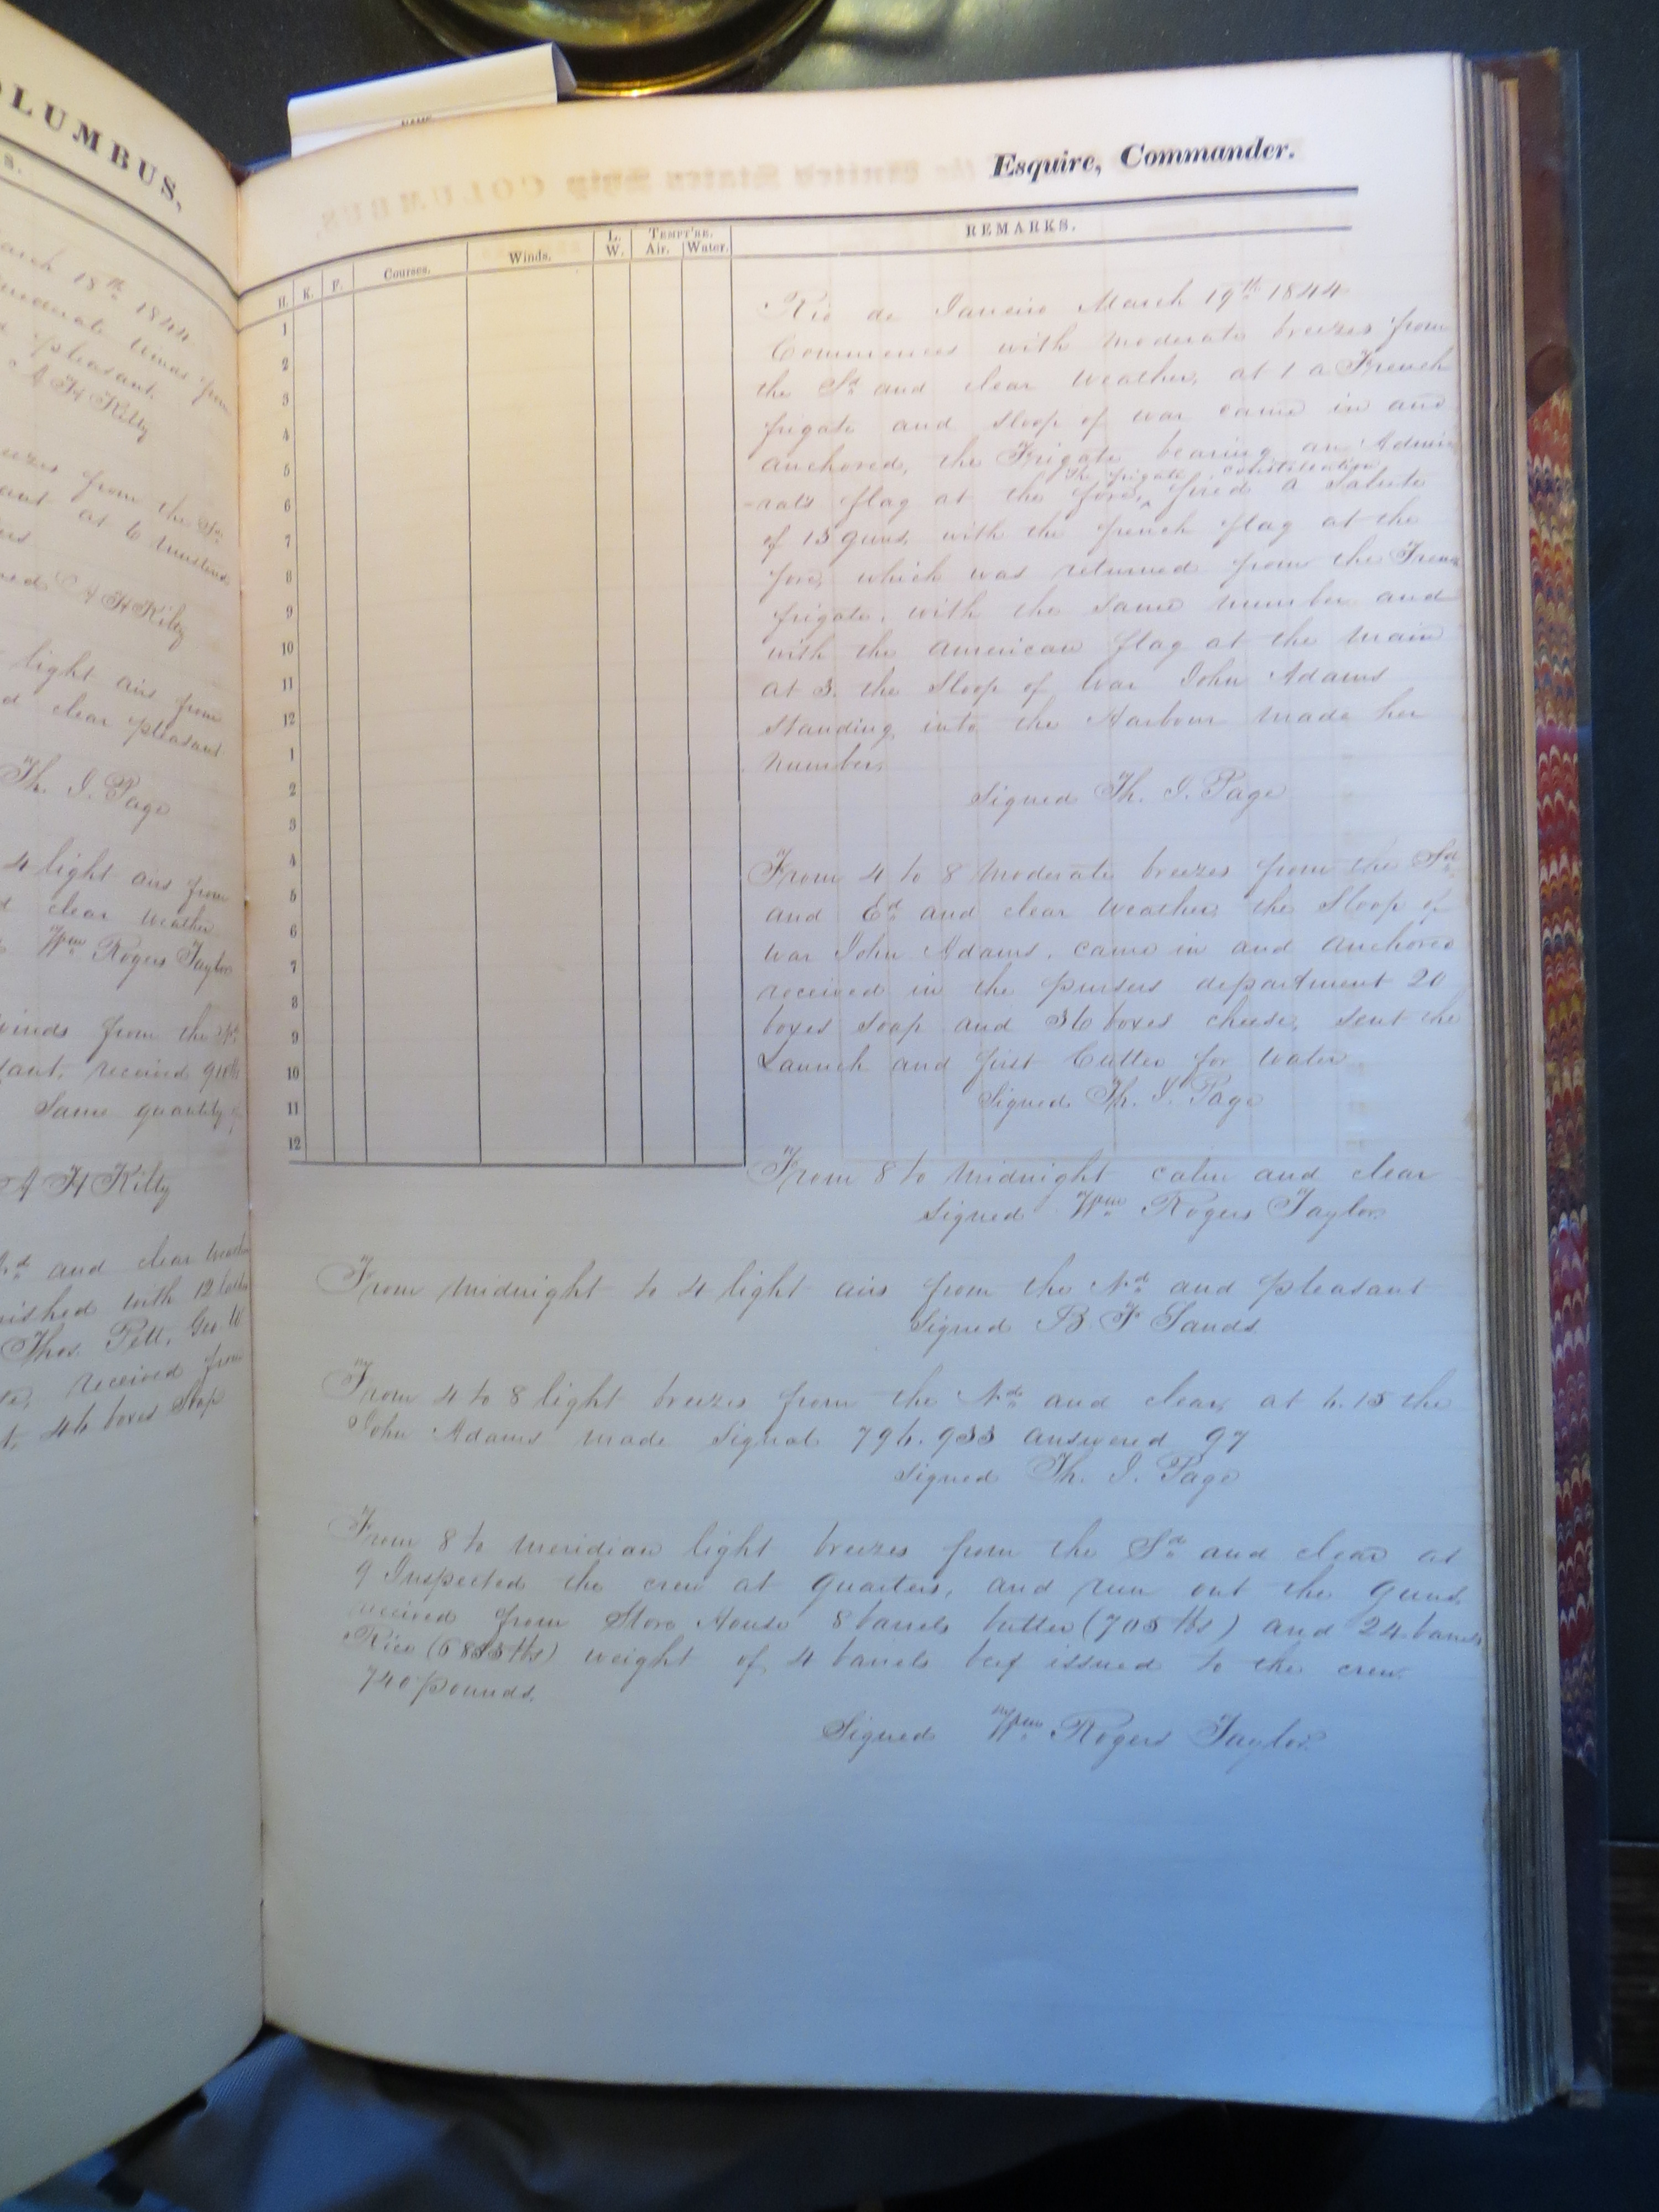 OLUMBUS,
S.
arch 18th 1844
moderate winds from
d pleasant.
A H Kilty
from the Sd
at 6 mustered
A H Kilty
light airs from
d clear pleasant
Th. J. Page
4 light airs from
d clear weather
Wm Rogers Taylor
winds from the Nd
ant. received
Same quantity
A H Kilty
and clear
nished with 12
Thos.
received from
46 boxes Soap
Esquire, Commander.
H. K. F. Courses. Winds. L. W. TEMPT'RE. Air. Water. REMARKS.
1
2
3
4
5
6
7
8
9
10
11
12
1
2
3
4
5
6
7
8
9
10
11
12
Rio de Janeiro March 19th 1844
Commences with moderate breezes from
the Sd and clear weather, at 1 a French
frigate and sloop of war came in and
anchored, the Frigate bearing an Admi
The frigate constitution
-rals flag at the fore, ^ fired a Salute
of 15 guns, with the french flag at the
fore, which was returned from the Fren
frigate, with the same number and
with the american flag at the main
at 3. the Sloop of War John Adams
standing into the Harbour made her
number.
Signed Th. J. Page
From 4 to 8 moderate breezes from the Sd
and Ed and clear weather, the Sloop of
war John Adams. came in and anchored
received in the pursers department 20
boxes soap and 36 boxes cheese, sent the
Launch and first Cutter for water
Signed Th. J. Page
From 8 to midnight calm and clear
Signed Wm Rogers Taylor
From midnight to 4 light airs from the Nd and pleasant
Signed B F Sands
From 4 to 8 light breezes from the Nd and clear, at 6.15 the
John Adams made Signal 796. 933 answered 97
Signed Th. J. Page
From 8 to meridian light breezes from the Sd and clear at
9 Inspected the crew at quarters, and run out the guns
received from Store House 8 barrels butter (705 lbs) and 24 barrels
Rice weight of 4 barrels beef issued to the crew
740 pounds.
Signed Wm Rogers Taylor